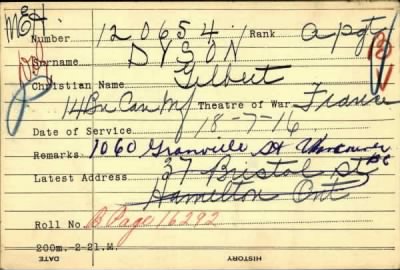 M&H.
Number 120654 Rank A/Sgt
Surname DYSON
Christian Name Gilbert
14 Bn Can Inf Theatre of War France
Date of Service 18-7-16
Remarks 1060 Granville St Vancouver BC
Latest Address 37 Bristol St
Hamilton Ont
Roll No. B Page 16292
200m.-2-21.M.
DATE